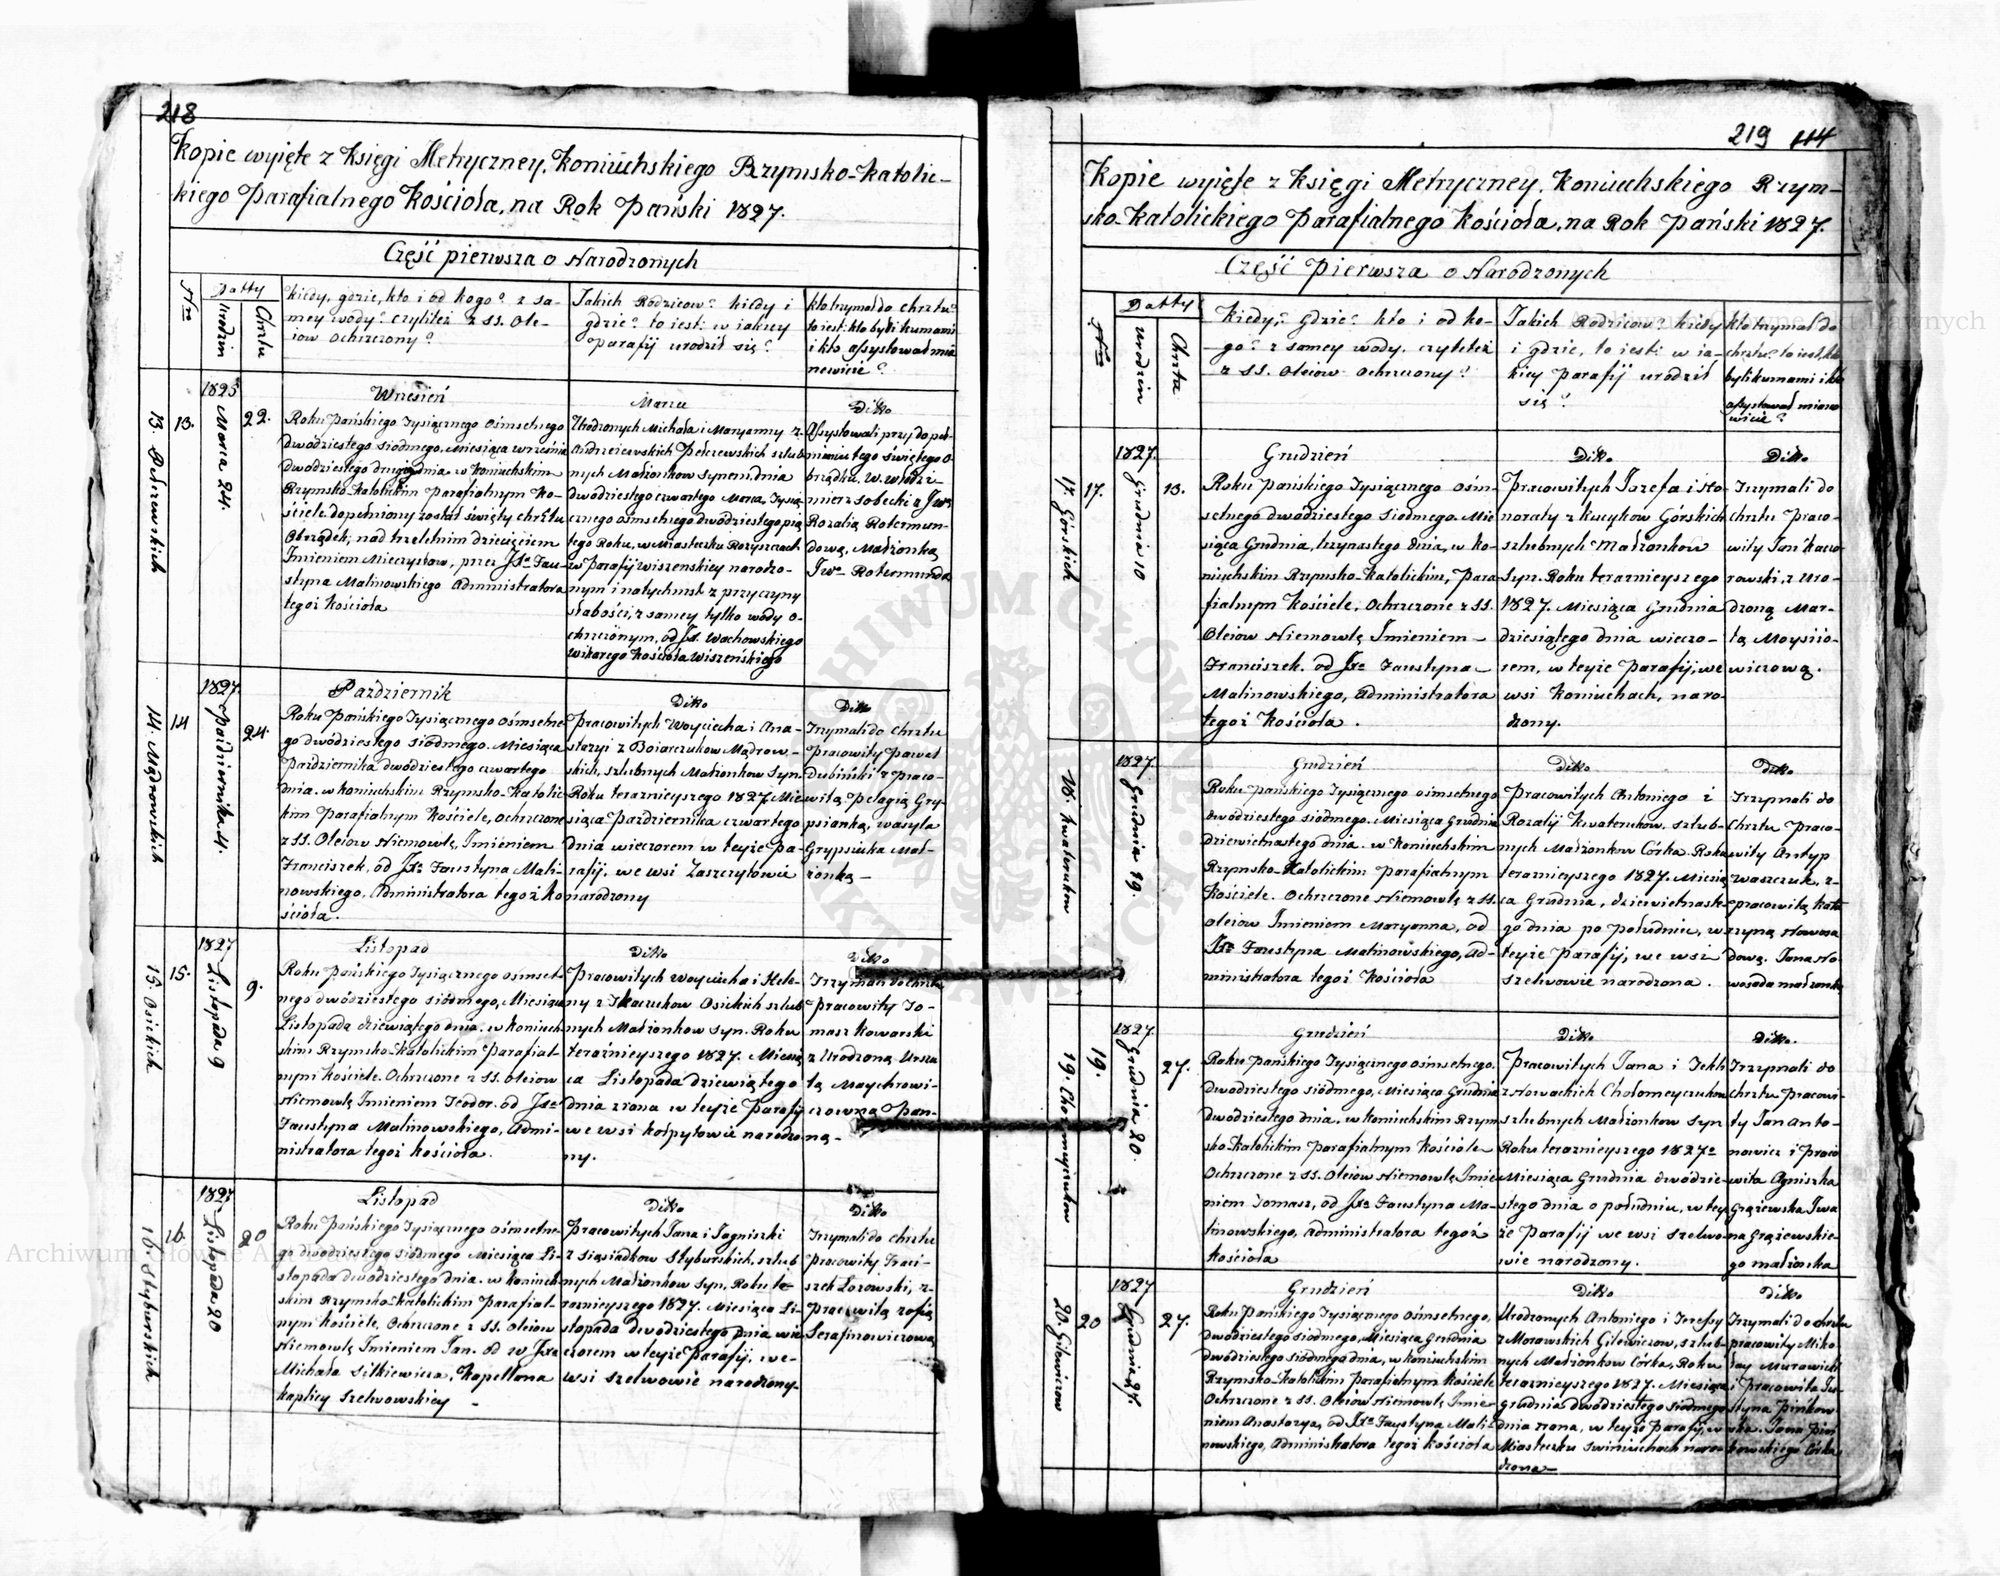 218
Kopie wyięte z Księgi Metryczney, Koniuchskiego Rzymsko-Katolic-
kiego Parafialnego Kościoła, na Rok Pański 1827.
Część pierwsza o Narodzonych
Nro
Datty
Urodzin
Chrztu
kiedy, gdzie, kto i od kogo? z sa-
mey wody? czyliteż z SS. Ole-
iow Ochrzczony?
Jakich Rodzicow? kiedy i
gdzie? to iest: w iakiey
parafij urodził się?
kto trzymał do chrztu?
to iest: kto byli kumami
i kto assystował mia
nowicie?
13. Pełczewskich
13.
1825
Marca 24.
22.
Wrzesień
Roku Pańskiego Tysiącznego Ośmsetnego
dwódziestego siódmego, Miesiąca września
dwódziestego drugiego dnia, w Koniuchskim
Rzymsko-Katolickim parafialnym Ko-
ściele dopełniony został święty chrztu
Obrządek, nad trzyletnim dziecięciem
Imieniem Mieczysław, przez Jx Fau-
styna Malinowskiego Administratora
tegoż Kościoła
Marca
Urodzonych Michała i Maryanny z
Andrzeiewskich Pełczewskich szlub-
nych Małżonkow Synem, dnia
dwódziestego czwartego Marca, Tysią
cznego ośmsetnego dwódziestego pią
tego Roku, w Miasteczku Rożyszczach
w parafij Wiszenskiey narodzo-
nym i natychmst z przyczyny
słabości, z samey tylko wody o-
chrzczonym, od Jx. Wachowskiego
Wikarego Kościoła Wiszeńskiego
Ditto
Assystowali przy dopeł-
nieniu tego świętego O-
brządku, W. Włodzi-
mierz Sobecki z Jwą
Rozalią Rotermun-
dową, Małżonką
Jwo Rotermunda
14. Mądrowskich
14
1827.
Października 4.
24.
Październik
Roku Pańskiego Tysiącznego ośmsetne-
go dwódziestego siódmego, Miesiąca
Października dwódziestego czwartego
dnia, w Koniuchskim Rzymsko-Katolic-
kim parafialnym Kościele, Ochrzczone
z SS. Oleiow Niemowlę, Imieniem
Franciszek, od Jx Faustyna Mali-
nowskiego, Administratora tegoż Ko
ścioła.
Ditto
Pracowitych Woyciecha i Ana-
stazyi z Boiarczukow Mądrow-
skich, szlubnych Małżonkow Syn,
Roku terazńieyszego 1827 Mie
siąca Października czwartego
dnia wieczorem w teyże Pa-
rafij, we wsi Zaszczytowie
narodzony
Ditto
Trzymali do Chrztu
Pracowity Paweł
Dubiński z Praco-
witą Pelagią Gry-
psianką, Wasyla
Grypsiuka Mał-
żonką-
15. Osickich
15.
1827
Listopada 9
9.
Listopad
Roku Pańskiego Tysiącznego ośmset-
nego dwódziestego siódmego, Miesiąca
Listopada dziewiątego dnia, w Koniuch
skim Rzymsko-Katolickim Parafial-
nym Kościele, Ochrzczone z SS. Oleiow
Niemowlę Imieniem Teodor, od Jxa
Faustyna Malinowskiego, Admi-
nistratora tegoż Kościoła.
Ditto
Pracowitych Woyciecha i Hele-
ny z Tkaczukow Osickich szlub
nych Małżonkow Syn, Roku
teraźnieyszego 1827. Miesią
ca Listopada dziewiątego
dnia z rana w teyże Parafij
we wsi Kołpytowie narodzo
ny.
Ditto
Trzymali do chrztu
Pracowity To-
masz Kowarski
z Urodzoną Urszu
lą Maychrowi-
czowną Pan-
ną-
16. Styburskich
16.
1827
Listopada 20
20
Listopad
Roku Pańskiego Tysiącznego Ośmsetne-
go dwódziestego siódmego Miesiąca Li-
stopada dwódziestego dnia, w Koniuch
skim Rzymsko-Katolickim Parafial-
nym Kościele, Ochrzczone z SS. Oleiow
Niemowlę Imieniem Jan, od W Jxa
Michała Sitkiewicza, Kapellana
Kaplicy Szelwowskiey -
Ditto
Pracowitych Jana i Jagniszki
z Siąsiadkow Styburskich, szlub
nych Małżonkow Syn, Roku te-
razńieyszego 1827. Miesiąca Li-
stopada dwódziestego dnia wie
czorem w teyże Parafij, we-
wsi Szelwowie narodzony-
Ditto
Trzymali do chrztu
Pracowity Franci-
szek Lozowski, z
Pracowitą Zofią
Serafinowiczową
219 114
Kopie wyięte z Księgi Metryczney, Koniuchskiego Rzym-
sko-Katolickiego Parafialnego Kościoła, na Rok Pański 1827.
Część Pierwsza o Narodzonych
Nro
Datty
Urodzin
Chrzta
Kiedy? Gdzie? kto i od ko-
go? z samey wody, czyliteż
z SS. Oleiow Ochrzczony?
Jakich Rodzicow? kiedy
i gdzie, to iest: w ia-
kiey Parafij urodził
się?
kto trzymał do
chrztu? to iest, kto
byli kumami i kto
assystował miano
wicie?
17. Górskich
17.
1827.
Grudnia 10
13.
Grudzień
Roku Pańskiego Tysiącznego Ośm-
setnego dwódziestego siódmego. Mie
siąca Grudnia, trzynastego dnia, w Ko-
niuchskim Rzymsko-Katolickim, Para
fialnym Kościele, Ochrzczone z SS.
Oleiow Niemowlę Imieniem
Franciszek, od Jxa Faustyna
Malinowskiego, Administratora
tegoż Kościoła.
Ditto
Pracowitych Jozefa i Ho-
noraty z Kucykow Górskich
szlubnych Małżonkow
Syn. Roku terazńieyszego
1827. Miesiąca Grudnia
dziesiątego dnia wieczo-
rem, w teyże Parafij, we
wsi Koniuchach, naro-
dzony.
Ditto
Trzymali do
Chrztu Praco-
wity Jan Kaczo
rowski, z Uro-
dzoną Mar-
tą Moysiio-
wiczową.
18. Kwaterukow
1827.
Grudnia 19.
Grudzień
Roku Pańskiego Tysiącznego ośmsetnego
dwódziestego siódmego. Miesiąca Grudnia
dziewietnastego dnia, w Koniuchskim
Rzymsko-Katolickim Parafialnym
Kościele, Ochrzczone Niemowlę z SS.
Oleiow Imieniem Maryanna, od
Jxa Faustyna Malinowskiego, Ad-
ministratora tegoż Kościoła
Ditto
Pracowitych Antoniego i
Rozalij Kwaterukow, szlub-
nych Małżonkow Córka, Roku
terazńieyszego 1827. Miesią
ca Grudnia, dziewietnaste-
go dnia po południu, w
teyże Parafij, we wsi
Szelwowie narodzona.
Ditto
Trzymali do
Chrztu Praco-
wity Antyp
Waszczuk, z
pracowitą Kata
rzyną Nowosa
dową, Jana No
wosada małżonką
19. Chołomyczukow
19.
1827.
Grudnia 20.
27.
Grudzień
Roku Pańskiego Tysiącznego ośmsetnego
dwódziestego siódmego, Miesiąca Grudnia
dwódziestego dnia, w Koniuchskim Rzym
sko-Katolickim parafialnym Kościele
Ochrzczone z SS. Oleiow Niemowlę Imie
niem Tomasz, od Jxa Faustyna Ma-
linowskiego, Administratora tegoż
Kościoła
Ditto
Pracowitych Jana i Tekli
z Nowackich Chołomeyczukow
szlubnych Małżonkow Syn
Roku terazńieyszego 1827o
Miesiąca Grudnia dwódzie-
stego dnia o południu, w tey
że Parafij we wsi Szelwo-
wie narodzony.
Ditto.
Trzymali do
chrztu Pracowi-
ty Jan Anto-
nowicz i Praco
wita Agniszka
Grążewska Iwa
na Grążewskie-
go małżonka
20. Gilewiczow
20
1827
Grudnia 27.
27.
Grudzień
Roku Pańskiego Tysiącznego Ośmsetnego,
dwódziestego siódmego, Miesiąca Grudnia
dwódziestego siódmego dnia, w Koniuchskim
Rzymsko-Katolickim parafialnym Kościele
Ochrzczone z SS. Oleiow Niemowlę Imie-
niem Anastazya, od Jxa Faustyna Mali-
nowskiego, Administratora tegoż Kościoła
Ditto
Urodzonych Antoniego i Teressy
z Morawskich Gilewiczow, szlub-
nych Małżonkow Córka, Roku
terazńieyszego 1827. Miesiąca
grudnia dwódziestego siódmego
dnia z rana, w teyże Parafij, w
Miasteczku Swiniuchach naro-
dzona-
Ditto
Trzymali do chrztu
pracowity Miko-
łay Murawicki
i Pracowita Jus-
tyna Pińkow-
ska, Jana Piń
kowskiego Córka
Archiwum Główne Akt Dawnych